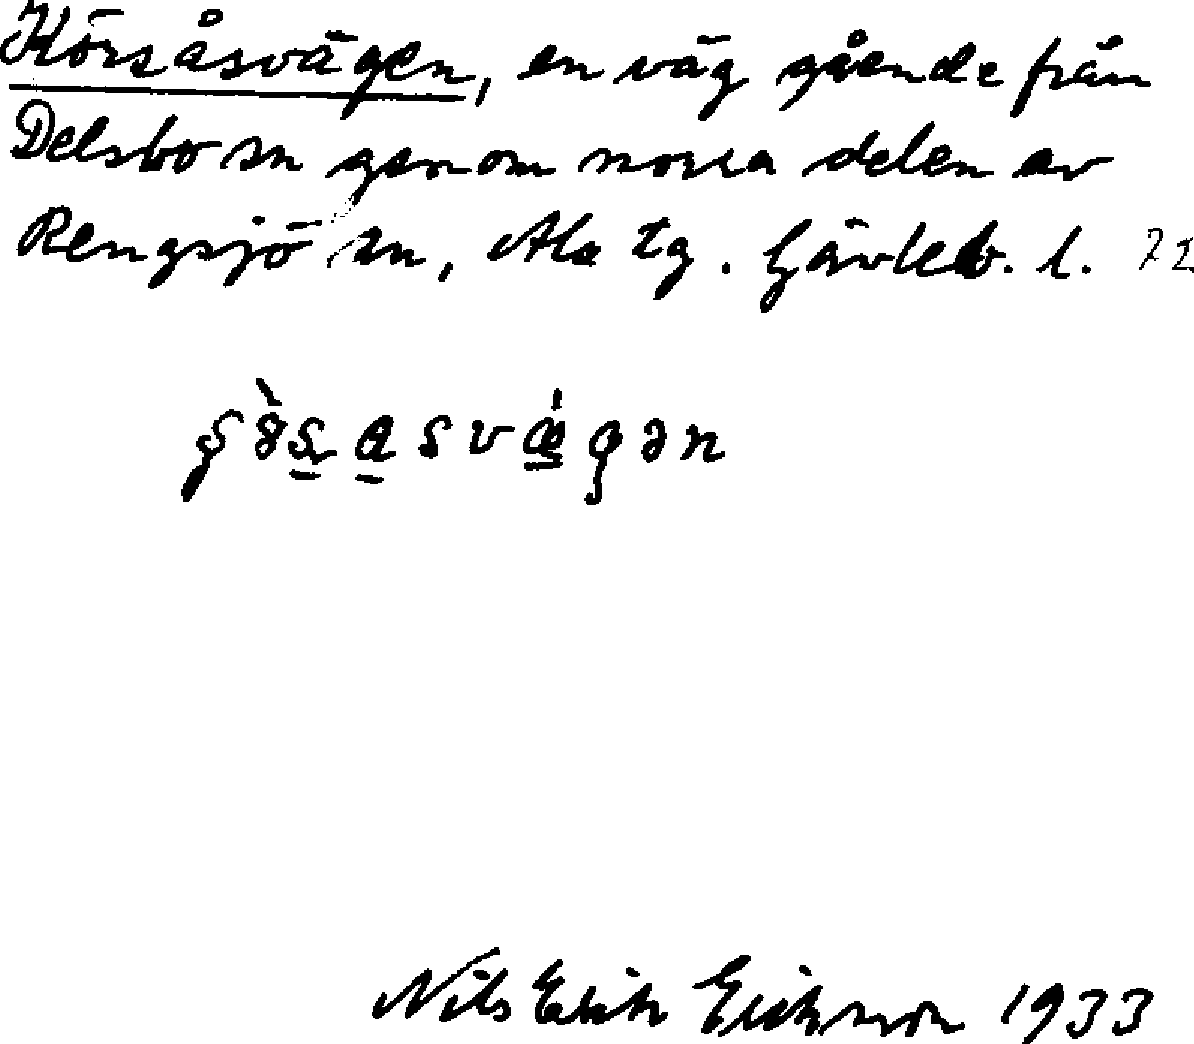 Körsåsvägen, en väg gående från
Delsbo sn genom norra delen av
Rengsjö sn, Ala tg. Gävleb. l. 72
Nils Erik Erikson 1933